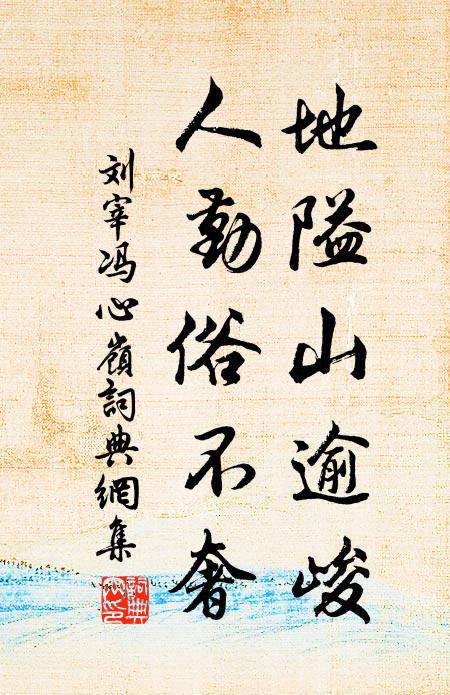 地隘山逾峻
人勤俗不奢
刘宰冯心嶺詞典網集